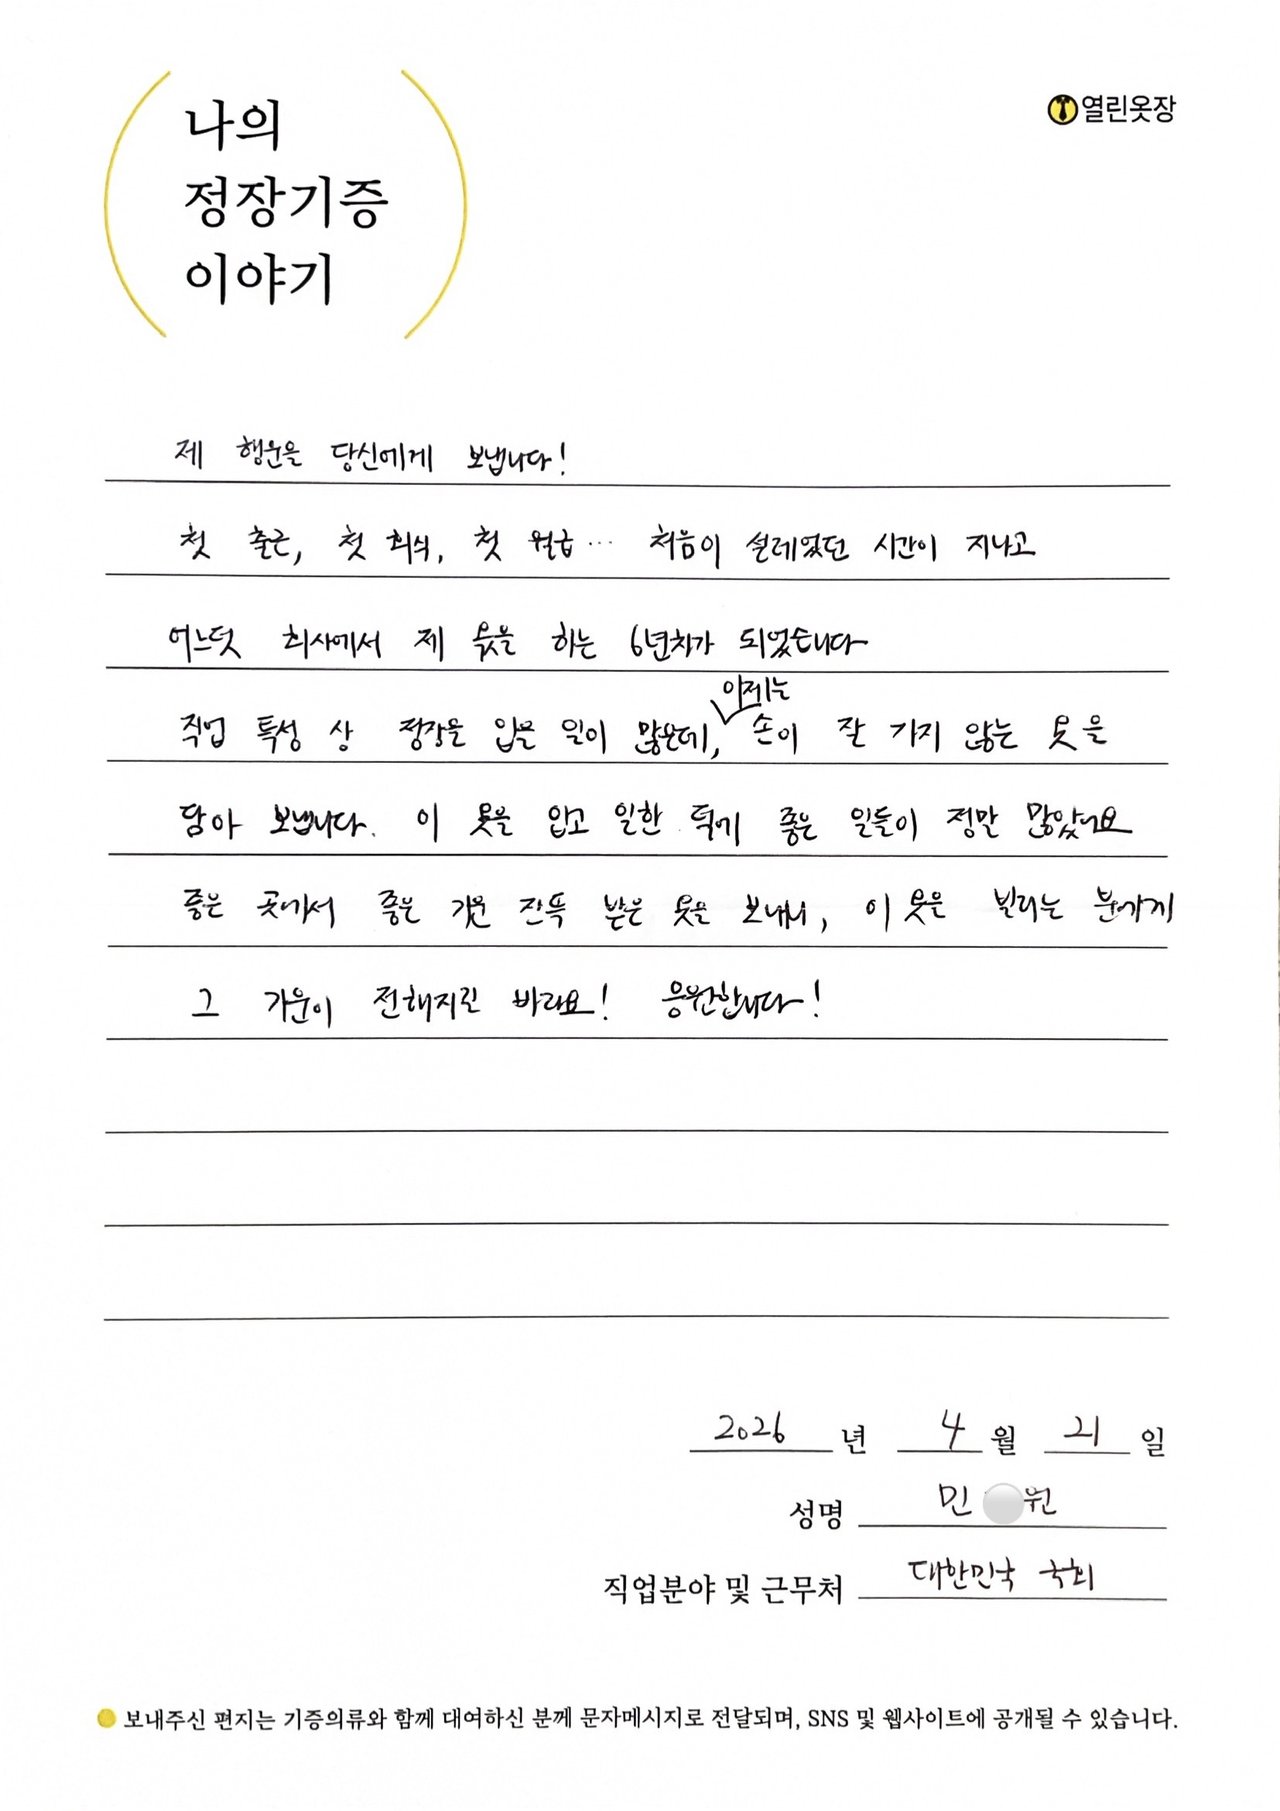 나의
정장기증
이야기
열린옷장
제 행운을 당신에게 보냅니다!
첫 출근, 첫 회식, 첫 월급… 처음이 설레였던 시간이 지나고
어느덧 회사에서 제 몫을 하는 6년차가 되었습니다
이제는
직업 특성 상 정장을 입을 일이 많은데, 손이 잘 가지 않는 옷을
담아 보냅니다. 이 옷을 입고 일한 덕에 좋은 일들이 정말 많았네요
좋은 곳에서 좋은 기운 잔뜩 받은 옷을 보내니, 이 옷을 빌리는 분에게
그 기운이 전해지길 바라요! 응원합니다!
2026 년 4 월 21 일
성명 민 원
직업분야 및 근무처 대한민국 국회
보내주신 편지는 기증의류와 함께 대여하신 분께 문자메시지로 전달되며, SNS 및 웹사이트에 공개될 수 있습니다.